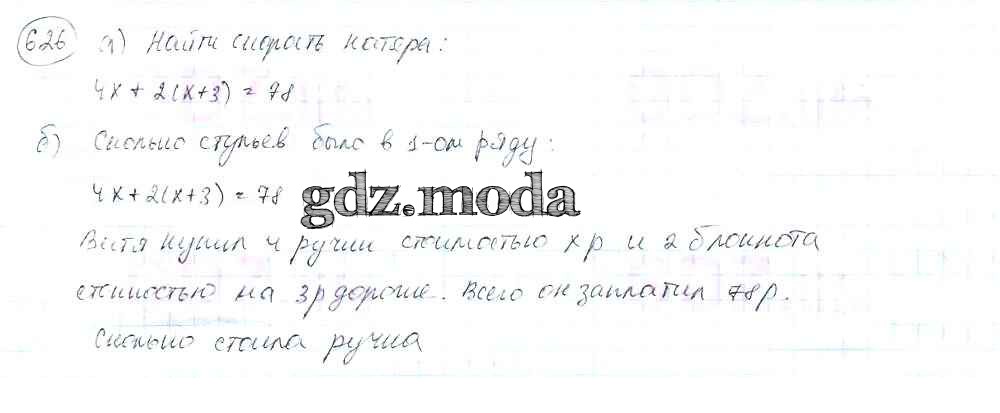 626 а) Найти скорость катера:
4x + 2(x+3) = 78
б) Сколько стульев было в 1-ом ряду:
4x+2(x+3) = 78
gdz.moda
Витя купил 4 ручки стоимостью x р и 2 блокнота
стоимостью на 3 р дороже. Всего он заплатил 78 р.
Сколько стоила ручка